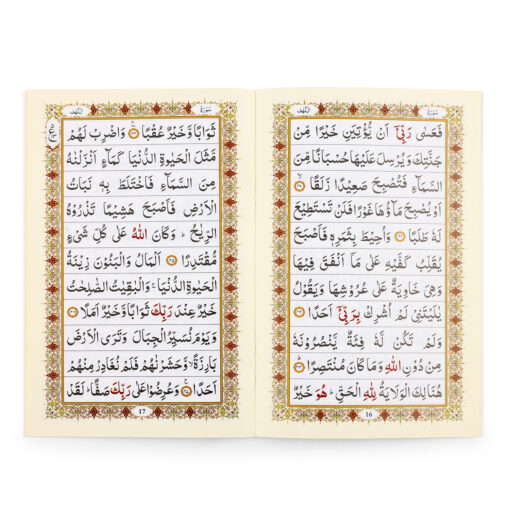 سُوْرَةُ الكَهف
فَعَسٰى رَبِّيْٓ اَنْ يُّؤْتِيَنِ خَيْرًا مِّنْ
جَنَّتِكَ وَيُرْسِلَ عَلَيْهَا حُسْبَانًا مِّنَ
السَّمَآءِ فَتُصْبِحَ صَعِيْدًا زَلَقًا
اَوْ يُصْبِحَ مَآؤُهَا غَوْرًا فَلَنْ تَسْتَطِيْعَ
لَهٗ طَلَبًا وَاُحِيْطَ بِثَمَرِهٖ فَاَصْبَحَ
يُقَلِّبُ كَفَّيْهِ عَلٰى مَآ اَنْفَقَ فِيْهَا
وَهِيَ خَاوِيَةٌ عَلٰى عُرُوْشِهَا وَيَقُوْلُ
يٰلَيْتَنِيْ لَمْ اُشْرِكْ بِرَبِّيْٓ اَحَدًا
وَلَمْ تَكُنْ لَّهٗ فِئَةٌ يَّنْصُرُوْنَهٗ
مِنْ دُوْنِ اللّٰهِ وَمَا كَانَ مُنْتَصِرًا
هُنَالِكَ الْوَلَايَةُ لِلّٰهِ الْحَقِّ ؕ هُوَ خَيْرٌ
16
سُوْرَةُ الكَهف
ثَوَابًا وَّخَيْرٌ عُقْبًا وَاضْرِبْ لَهُمْ
مَّثَلَ الْحَيٰوةِ الدُّنْيَا كَمَآءٍ اَنْزَلْنٰهُ
مِنَ السَّمَآءِ فَاخْتَلَطَ بِهٖ نَبَاتُ
الْاَرْضِ فَاَصْبَحَ هَشِيْمًا تَذْرُوْهُ
الرِّيٰحُ ؕ وَكَانَ اللّٰهُ عَلٰى كُلِّ شَيْءٍ
مُّقْتَدِرًا اَلْمَالُ وَالْبَنُوْنَ زِيْنَةُ
الْحَيٰوةِ الدُّنْيَا ۚ وَالْبٰقِيٰتُ الصّٰلِحٰتُ
خَيْرٌ عِنْدَ رَبِّكَ ثَوَابًا وَّخَيْرٌ اَمَلًا
وَيَوْمَ نُسَيِّرُ الْجِبَالَ وَتَرَى الْاَرْضَ
بَارِزَةً ۙ وَّحَشَرْنٰهُمْ فَلَمْ نُغَادِرْ مِنْهُمْ
اَحَدًا وَعُرِضُوْا عَلٰى رَبِّكَ صَفًّا ؕ لَقَدْ
17